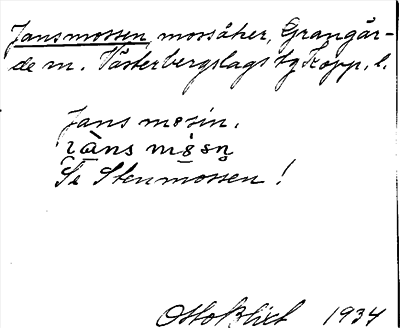 Jansmossen, mossåker, Grangär-
de sn. Västerbergslags tg Kopp. l.
Jans mosin.
Se Stenmossen!
Otto Blixt 1934